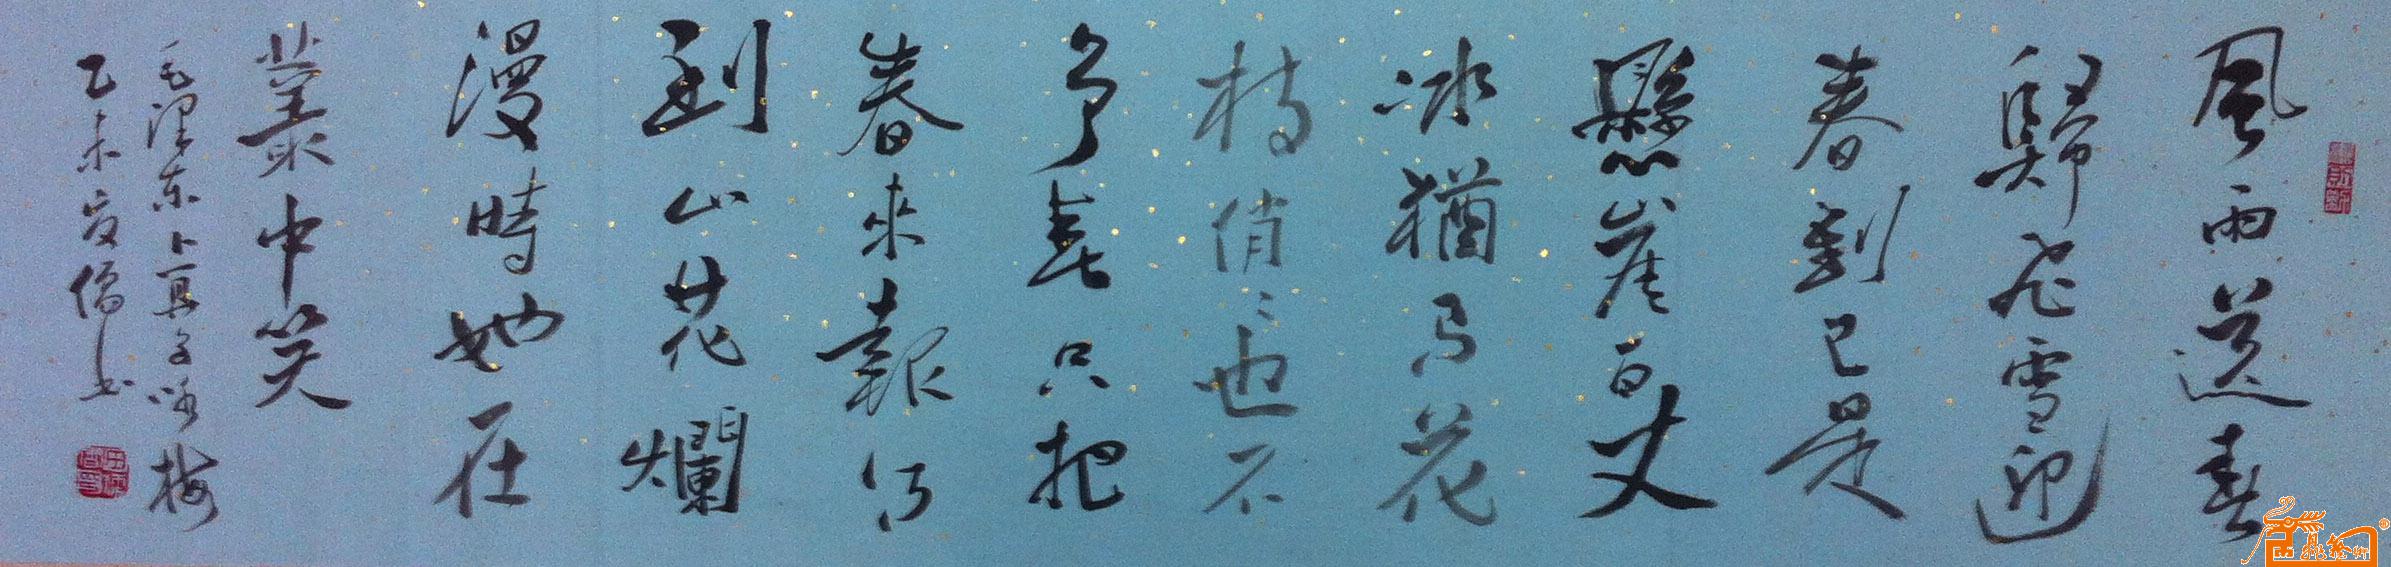 風雨送春
歸飛雪迎
春到已是
懸崖百丈
冰猶有花
枝俏〻也不
爭春只把
春來報待
到山花爛
漫時她在
叢中笑
毛澤東卜算子咏梅
乙未夏